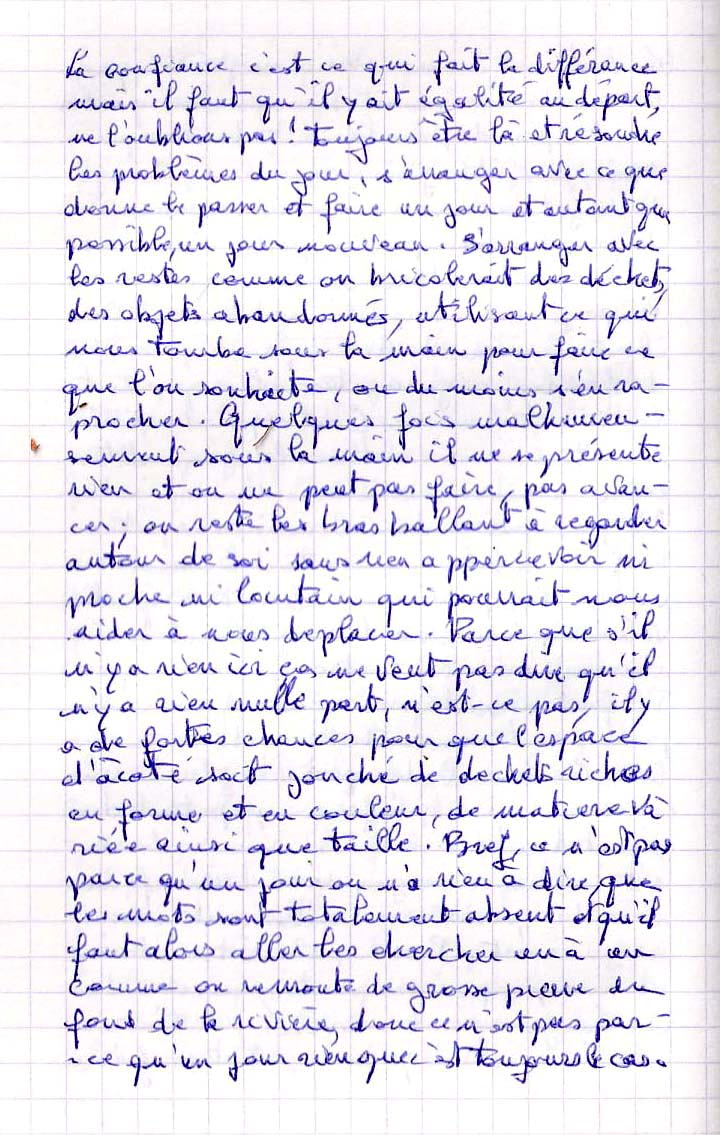 La confiance c'est ce qui fait la différance
mais il faut qu'il y ait égalité au départ,
ne l'oublions pas ! Toujours être là et résoudre
les problèmes du jour, s'arranger avec ce que
donne le passer et faire un jour et autant que
possible, un jour nouveau. S'arranger avec
les restes comme on bricolerait des déchets,
des objets abandonnés, utilisant ce qui
nous tombe sous la main pour faire ce
que l'on souhaite, ou du moins s'en ra-
procher. Quelques fois malheureu-
sement sous la main il ne se présente
rien et on ne peut pas faire, pas avan-
cer ; on reste les bras ballant à regarder
autour de soi sans rien appercevoir ni
proche ni lointain qui pourrait nous
aider à nous deplacer. Parce que s'il
n'y a rien ici ça ne veut pas dire qu'il
n'y a rien nulle part, n'est-ce pas, il y
a de fortes chances pour que l'espace
d'àcoté soit jonché de dechets riches
en forme et en couleur, de matiere va
riée ainsi que taille. Bref, ce n'est pas
parce qu'un jour on n'a rien à dire que
les mots sont totalement absent et qu'il
faut alors aller les chercher un à un
comme on remonte de grosse pierre du
fond de la rivière, donc ce n'est pas par-
ce qu'un jour rien que c'est toujours le cas.